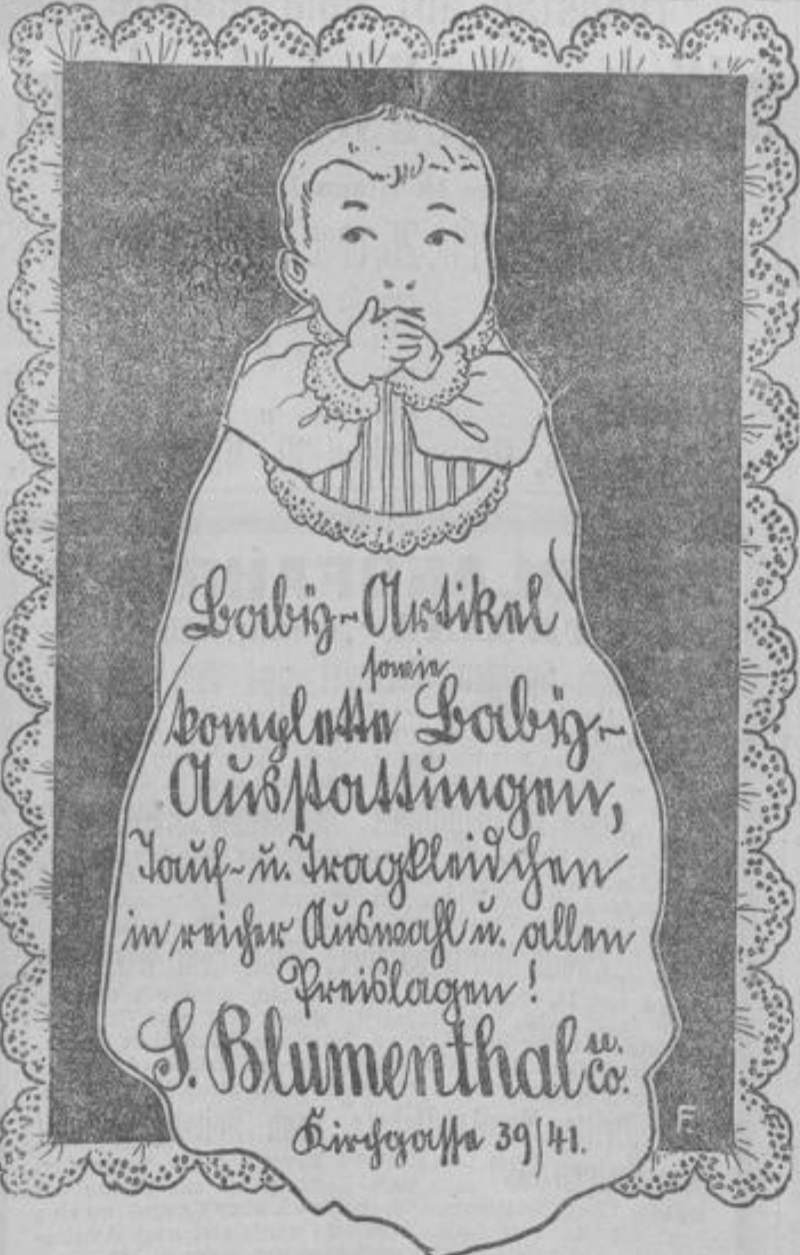 Baby-Artikel
sowie
komplette Baby-
Ausstattungen,
Tauf- u. Tragkleidchen
in reicher Auswahl u. allen
Preislagen!
S. Blumenthal u. Co.
Kirchgasse 39/41.
F